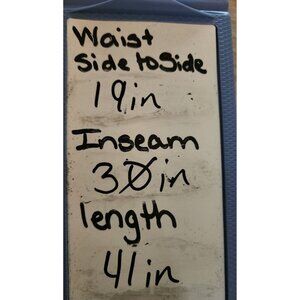 Waist
Side to Side
19in
Inseam
30in
length
41in